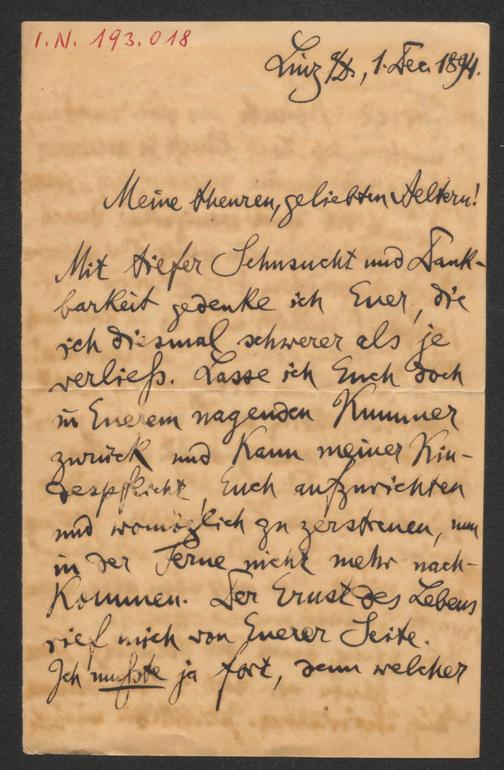 I.N. 193.018
Linz a/D., 1. Dec. 1894.
Meine theuren, geliebten Aeltern!
Mit tiefer Sehnsucht und Dank-
barkeit gedenke ich Euer, die
ich diesmal schwerer als je
verließ. Lasse ich Euch doch
in Euerem nagenden Kummer
zurück und kann meiner Kin-
despflicht, Euch aufzurichten
und womöglich zu zerstreuen, nun
in der Ferne nicht mehr nach-
kommen. Der Ernst des Lebens
rief mich von Euerer Seite.
Ich mußte ja fort, denn welcher